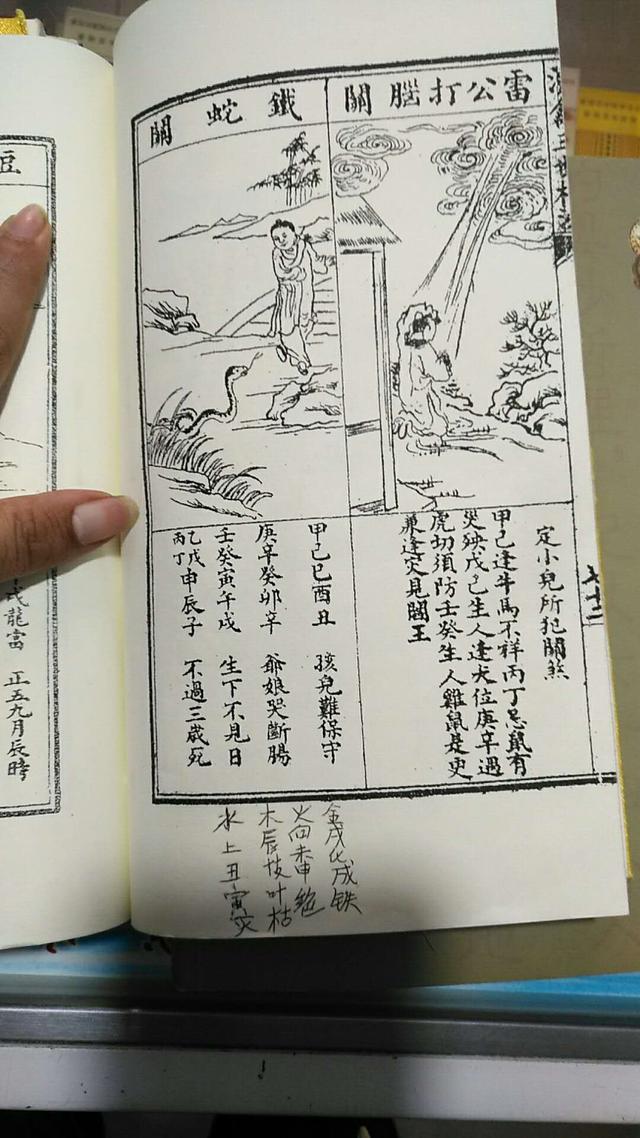 雷公打腦關
定小兒所犯關煞
甲己逢牛馬不祥丙丁忌鼠有
災殃戊己生人逢犬位庚辛遇
虎切須防壬癸生人雞鼠是更
兼逢災見閻王
鐵蛇關
甲己巳酉丑 孩兒難保守
庚辛癸卯辛 爺娘哭斷腸
壬癸寅午戌 生下不見日
乙戊丙丁申辰子 不過三歲死
金戌化成铁
火向未申絕
木辰枝叶枯
水上丑寅灾
七十二
正五九月辰時